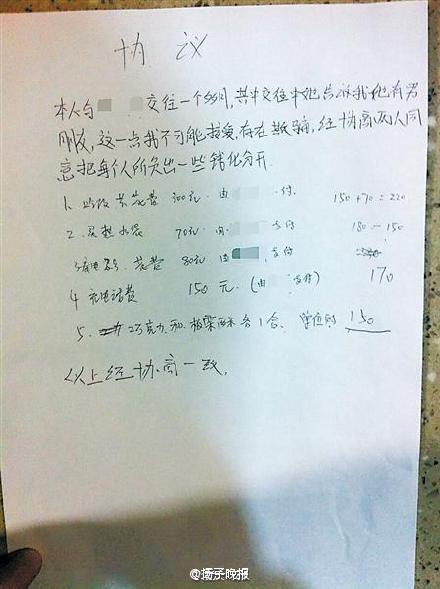 协 议
本人与 交往一个多月,其中交往中她告诉我她有男
朋友,这一点我不可能接受,存在欺骗,经协商两人同
意把每个人所负出一些钱化分开
1. 吃饭 花费 300元 由 支付 150+70=220
2. 买 水袋 70元 由 支付 180-150
看电影 花费 80元 由 支付
4 充电话费 150元 (由 支付) 170
5. 巧克力和 各1合. 150
以上经协商一致.
@扬子晚报